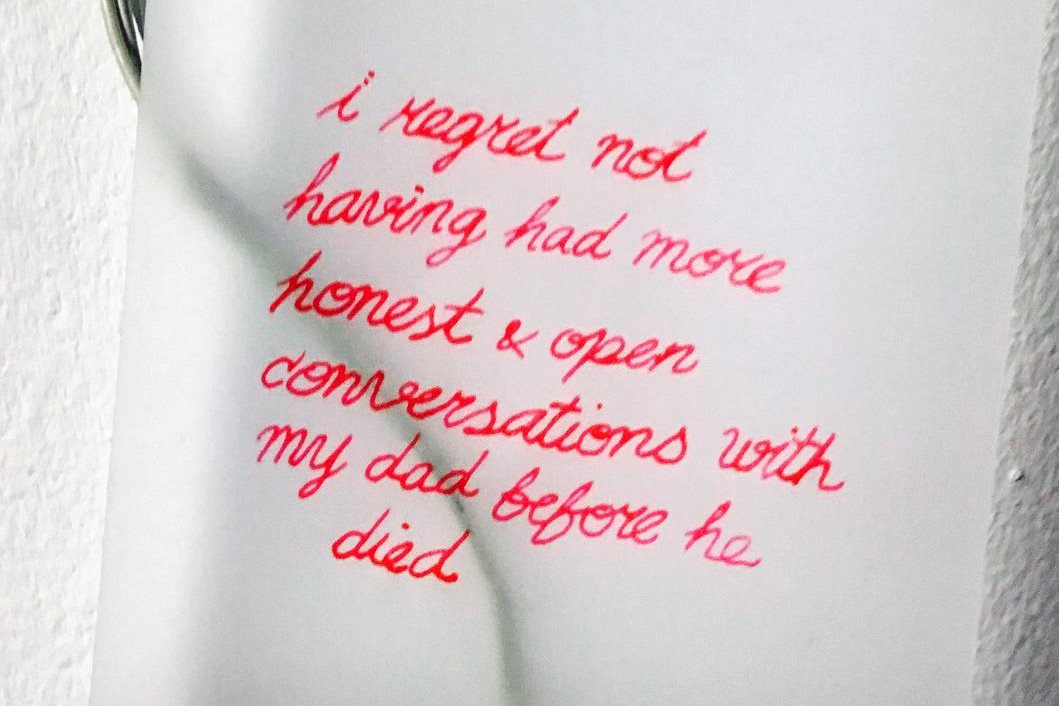 i regret not
having had more
honest & open
conversations with
my dad before he
died